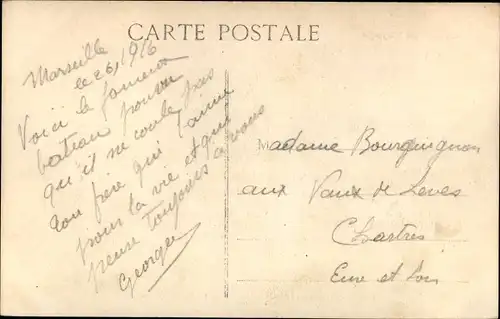 CARTE POSTALE
Marseille
le 26, 1916
Voici le fameux
bateau pourvu
qu'il ne coule pas
ton frère qui t'aime
pour la vie et qui
pense toujours à vous
Georges
Madame Bourguignon
aux Vaux de Lèves
Chartres
Eure et Loir